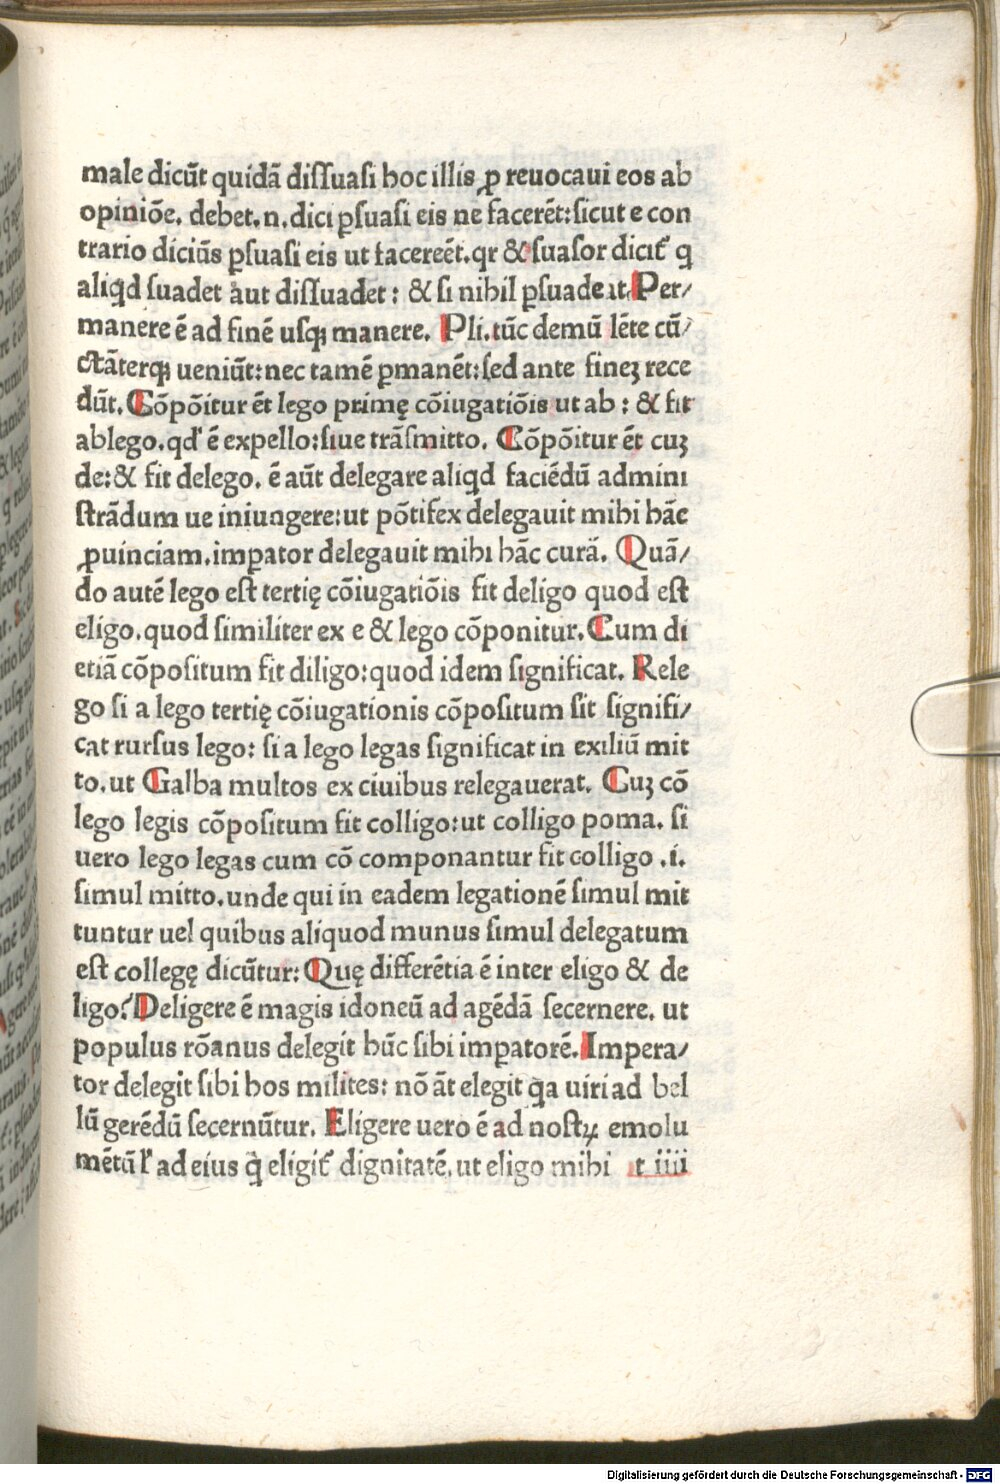 male dicūt quidā diſſuaſi hoc illis ꝓ reuocaui eos ab
opiniōe. debet.n.dici ꝑſuaſi eis ne facerēt:ſicut e con
trario diciūs ꝑſuaſi eis ut facereēt.qr & ſuaſor dicit᷑ q
aliqd ſuadet aut diſſuadet: & ſi nibil ꝑſuadeat.Per/
manere ē ad finē uſqꝫ manere. Pli.tūc demū lēte cū/
ctāterqꝫ ueniūt:nec tamē ꝑmanēt:ſed ante fineꝫ rece
dūt. Cōpōitur ēt lego primę cōiugatiōis ut ab: & fit
ablego.qd' ē expello:ſiue trāſmitto. Cōpōitur ēt cuꝫ
de:& fit delego. ē aūt delegare aliqd faciēdū admini
ſtrādum ue iniungere:ut pōtifex delegauit mihi hāc
ꝓuinciam.impator delegauit mihi hāc curā. Quā/
do autē lego eſt tertię cōiugatiōis fit deligo quod eſt
eligo.quod ſimiliter ex e & lego cōponitur. Cum di
etiā cōpoſitum fit diligo:quod idem ſignificat. Rele
go ſi a lego tertię cōiugationis cōpoſitum ſit ſignifi/
cat rurſus lego: ſi a lego legas ſignificat in exiliū mit
to.ut Galba multos ex ciuibus relegauerat. Cuꝫ cō
lego legis cōpoſitum fit colligo:ut colligo poma. ſi
uero lego legas cum cō componantur fit colligo .i.
ſimul mitto.unde qui in eadem legationē ſimul mit
tuntur uel quibus aliquod munus ſimul delegatum
eſt collegę dicūtur: Quę differētia ē inter eligo & de
ligo? Deligere ē magis idoneū ad agēdā ſecernere. ut
populus rōanus delegit hūc ſibi impatorē. Impera/
tor delegit ſibi hos milites: nō āt elegit qa uiri ad bel
lū gerēdū ſecernūtur. Eligere uero ē ad noſtꝝ emolu
mētū l' ad eius q̄ eligit᷑ dignitatē.ut eligo mihi t iiii
Digitalisierung gefördert durch die Deutsche Forschungsgemeinschaft - DFG